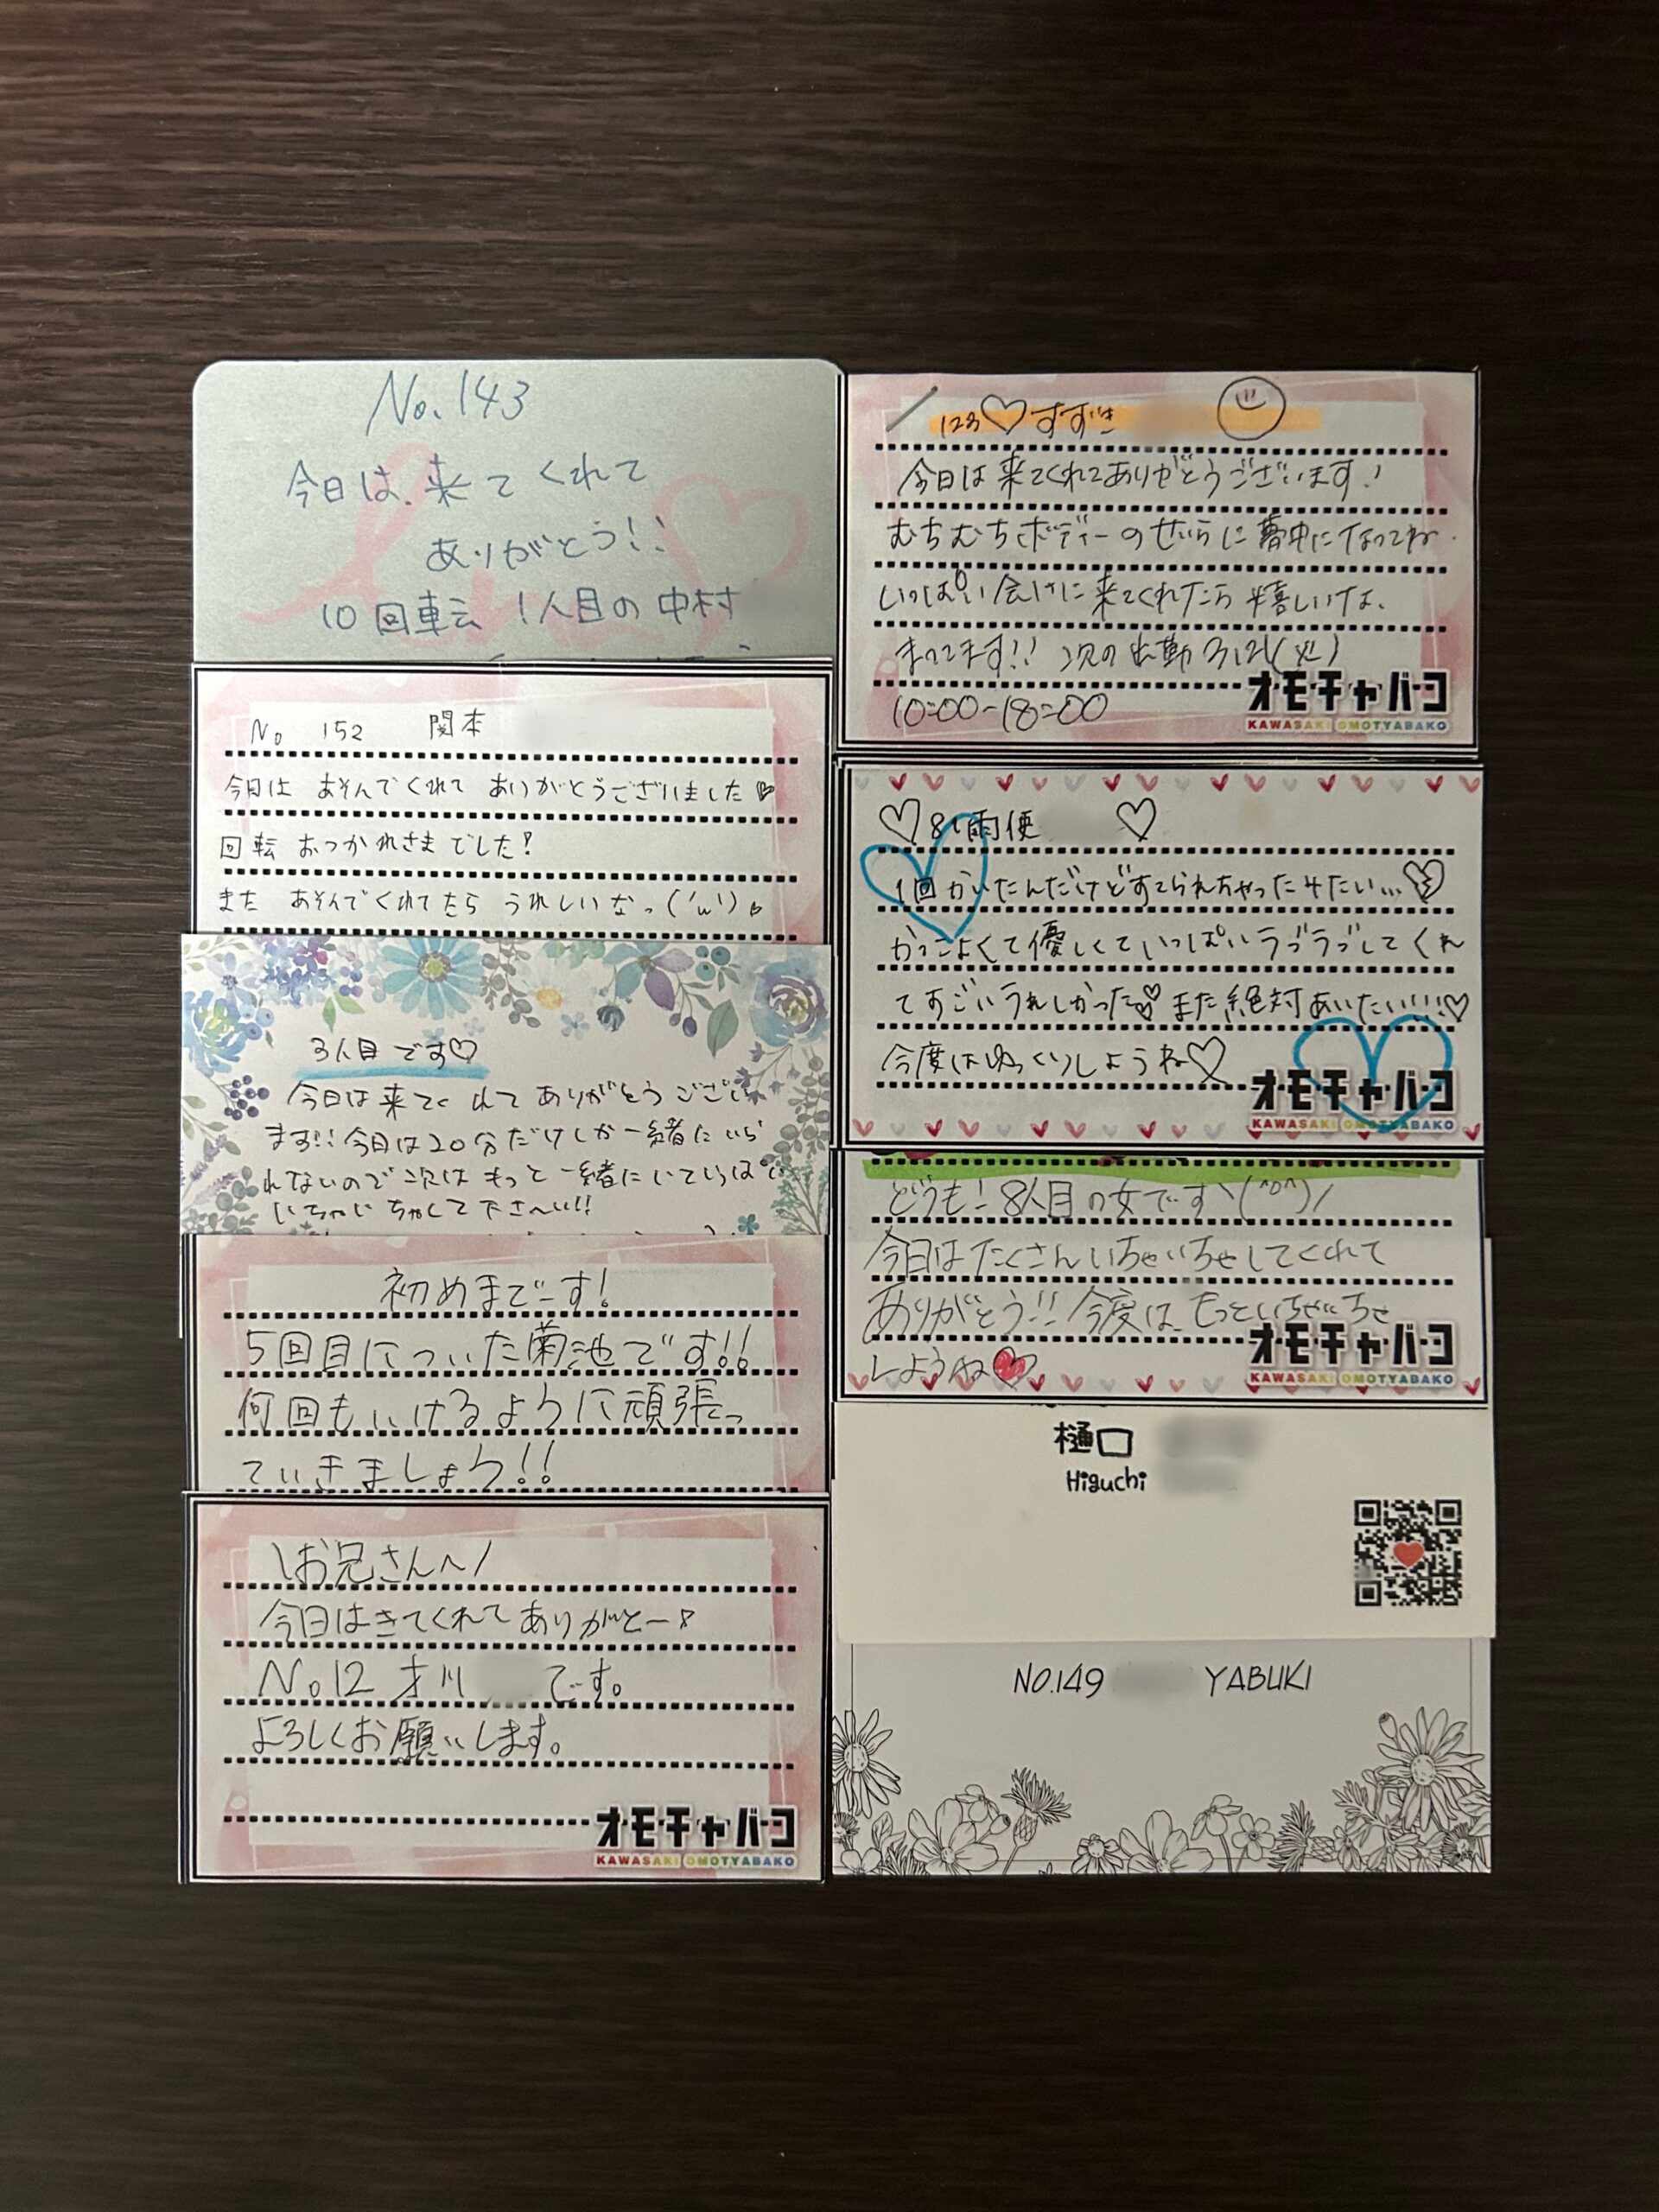 No.143
今日は、来てくれて
ありがとう!!
10回転 1人目の中村
No 152 関本
今日は あそんでくれて ありがとうございました♡
回転 おつかれさまでした!
また あそんでくれてたら うれしいなっ('ω')♡
3人目です♡
今日は来てくれてありがとうござい
ます!!今日は20分だけしか一緒にいら
れないので次はもっと一緒にいていっぱい
いちゃいちゃして下さ〜い!!
初めまでーす!
5回目についた菊池です!!
何回もいけるように頑張っ
ていきましょう!!
\お兄さん〜/
今日はきてくれてありがとー♪
No12 才川 です。
よろしくお願いします。
オモチャバコ
KAWASAKI OMOTYABAKO
123♡すずき
今日は来てくれてありがとうございます!
むちむちボディーのせいらに夢中になってね
いっぱい会いに来てくれたら嬉しいな、
まってます!! 次の出勤 3/21(火)
10:00-18:00
オモチャバコ
KAWASAKI OMOTYABAKO
♡81雨便 ♡
1回かいたんだけどすてられちゃったみたい…💔
かっこよくて優しくていっぱいラブラブしてくれ
てすごいうれしかった♡また絶対あいたい!!!!♡
今度はゆっくりしようね♡
オモチャバコ
KAWASAKI OMOTYABAKO
どうも! 8人目の女です\(^o^)/
今日はたくさんいちゃいちゃしてくれて
ありがとう!! 今度は、もっといちゃいちゃ
しようね♥
オモチャバコ
KAWASAKI OMOTYABAKO
樋口
Higuchi
NO.149 YABUKI